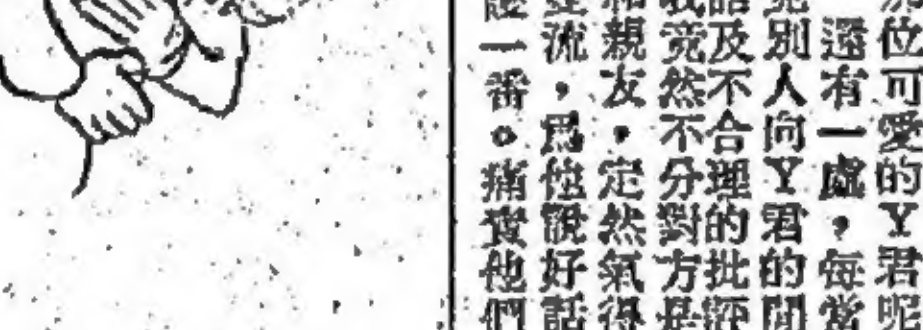 位可愛的Y君呢
還有一處，每當
別人向Y君的閒
話及不合理的批評
我竟然不分對方是
和親友，定然氣得
流，爲他說好話
一番。痛責他們